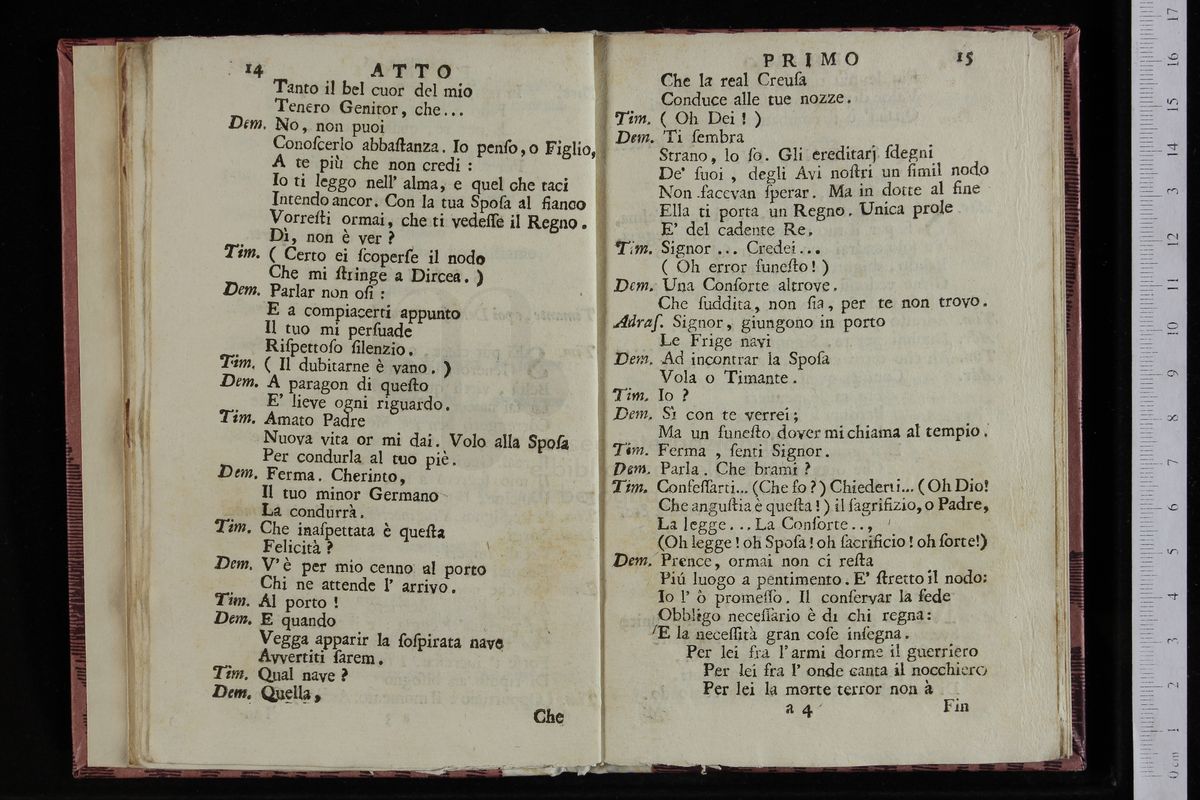 14 ATTO
Tanto il bel cuor del mio
Tenero Genitor, che...
Dem. No, non puoi
Conoſcerlo abbaſtanza. Io penſo, o Figlio,
A te più che non credi :
Io ti leggo nell' alma, e quel che taci
Intendo ancor. Con la tua Spoſa al fianco
Vorreſti ormai, che ti vedeſſe il Regno.
Di, non è ver ?
Tim. ( Certo ei ſcoperſe il nodo
Che mi ſtringe a Dircea. )
Dem. Parlar non oſi :
E a compiacerti appunto
Il tuo mi perſuade
Riſpettoſo ſilenzio.
Tim. ( Il dubitarne è vano. )
Dem. A paragon di queſto
E' lieve ogni riguardo.
Tim. Amato Padre
Nuova vita or mi dai. Volo alla Spoſa
Per condurla al tuo piè.
Dem. Ferma. Cherinto,
Il tuo minor Germano
La condurrà.
Tim. Che inaſpettata è queſta
Felicità ?
Dem. V' è per mio cenno al porto
Chi ne attende l' arrivo.
Tim. Al porto !
Dem. E quando
Vegga apparir la ſoſpirata nave
Avvertiti ſarem.
Tim. Qual nave ?
Dem. Quella,
Che
PRIMO 15
Che la real Creuſa
Conduce alle tue nozze.
Tim. ( Oh Dei ! )
Dem. Ti ſembra
Strano, lo ſo. Gli ereditarj ſdegni
De' ſuoi , degli Avi noſtri un ſimil nodo
Non facevan ſperar. Ma in dotte al fine
Ella ti porta un Regno. Unica prole
E' del cadente Re.
Tim. Signor ... Credei...
( Oh error funeſto ! )
Dem. Una Conſorte altrove.
Che ſuddita, non ſia, per te non trovo.
Adraſ. Signor, giungono in porto
Le Frige navi
Dem. Ad incontrar la Spoſa
Vola o Timante.
Tim. Io ?
Dem. Sì con te verrei;
Ma un funeſto dover mi chiama al tempio.
Tim. Ferma , ſenti Signor.
Dem. Parla. Che brami ?
Tim. Confeſſarti... (Che fo ?) Chiederti... ( Oh Dio!
Che anguſtia è queſta ! ) il ſagrifizio, o Padre,
La legge... La Conſorte..,
(Oh legge ! oh Spoſa ! oh ſacrificio ! oh ſorte!)
Dem. Prence, ormai non ci reſta
Piú luogo a pentimento. E' ſtretto il nodo:
Io l' ò promeſſo. Il conſervar la fede
Obbligo neceſſario è di chi regna:
E la neceſſità gran coſe inſegna.
Per lei fra l'armi dorme il guerriero
Per lei fra l' onde canta il nocchiero
Per lei la morte terror non à
a 4 Fin